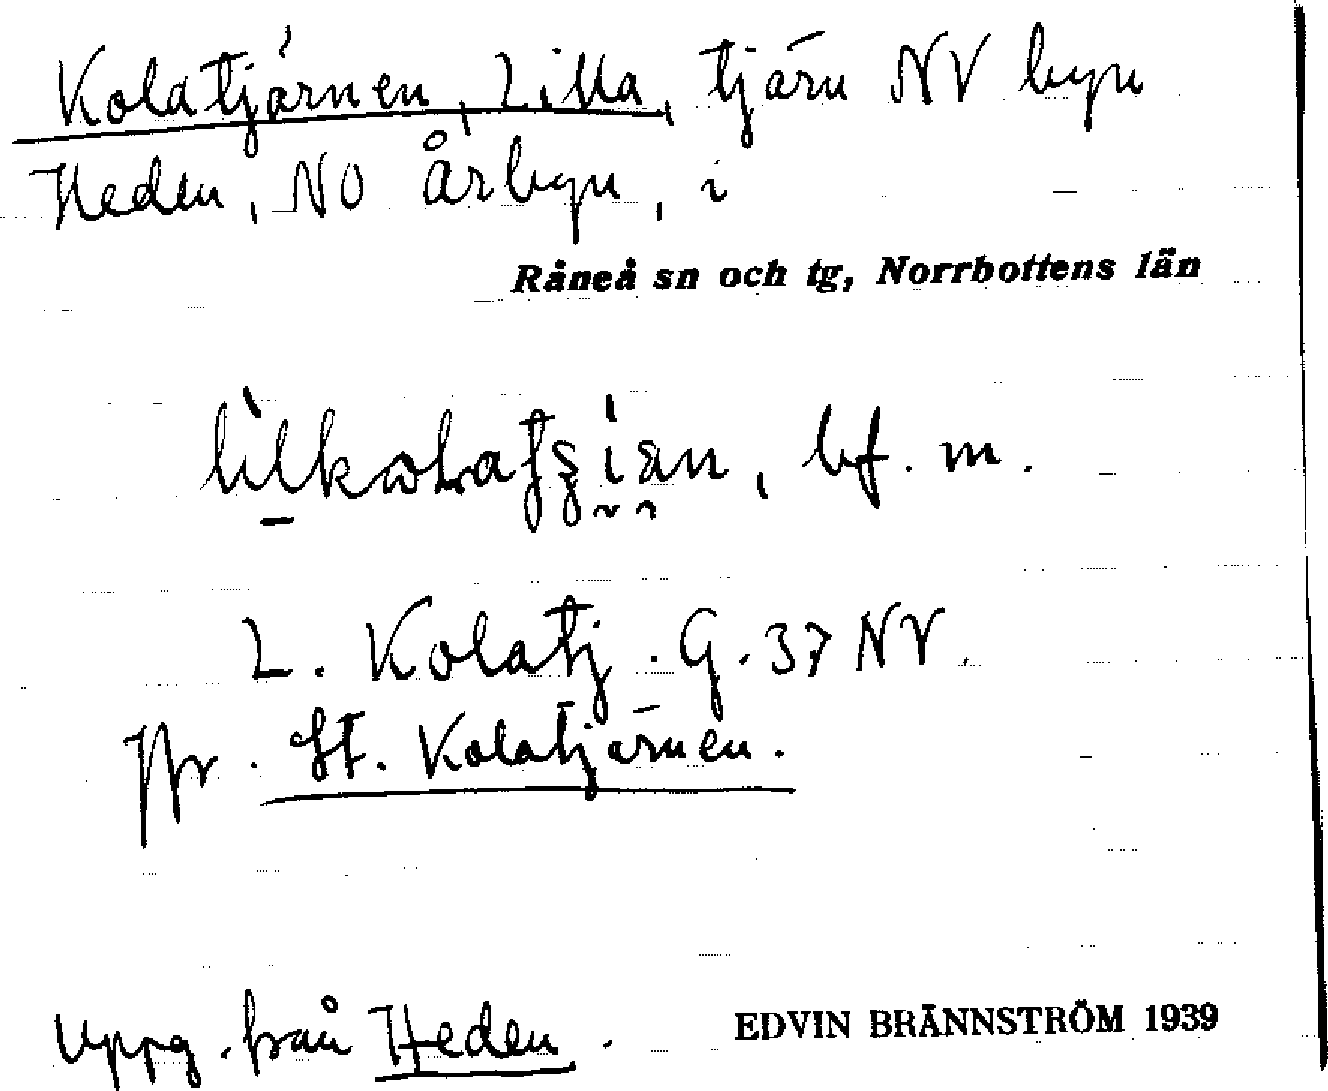 Kolatjärnen, Lilla, tjärn NV byn
Heden, NO Årbyn, i
Råneå sn och tg, Norrbottens län
bf. m.
L. Kolatj. G. 37 NV.
Jfr. St. Kolatjärnen.
Uppg. från Heden.
EDVIN BRÄNNSTRÖM 1939